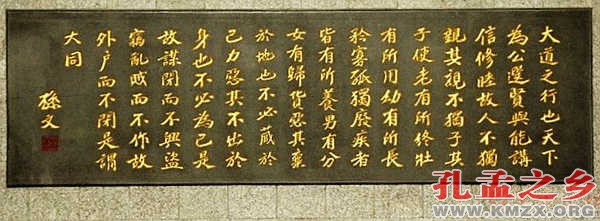 大道之行也天下
為公選賢與能講
信修睦故人不獨
親其親不獨子其
子使老有所終壯
有所用幼有所長
矜寡孤獨廢疾者
皆有所養男有分
女有歸貨惡其棄
於地也不必藏於
己力惡其不出於
身也不必為己是
故謀閉而不興盜
竊亂賊而不作故
外戶而不閉是謂
大同
孫文
孔孟之乡
WWW.KMZX.ORG